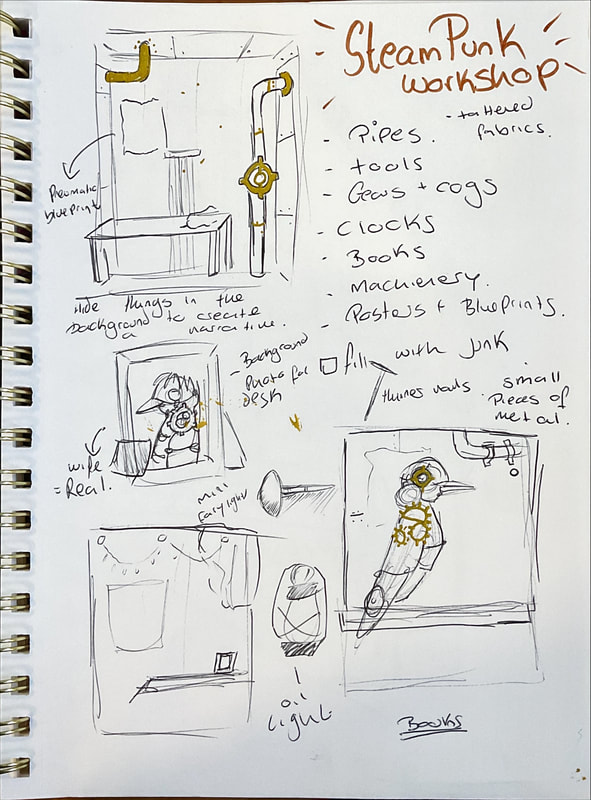 SteamPunk
workshop
- Pipes.
- tattered
fabrics.
- tools
- Gears + cogs
- Clocks
- Books
- machienery.
- Posters + Blueprints.
Pneumatic
blueprint
Hide things in the
background to create
a narrative.
- Background
Photo for
desk
fill with junk
small
Pieces of
metal.
wife
= Real.
mini
fairylight
oil
Light
Books